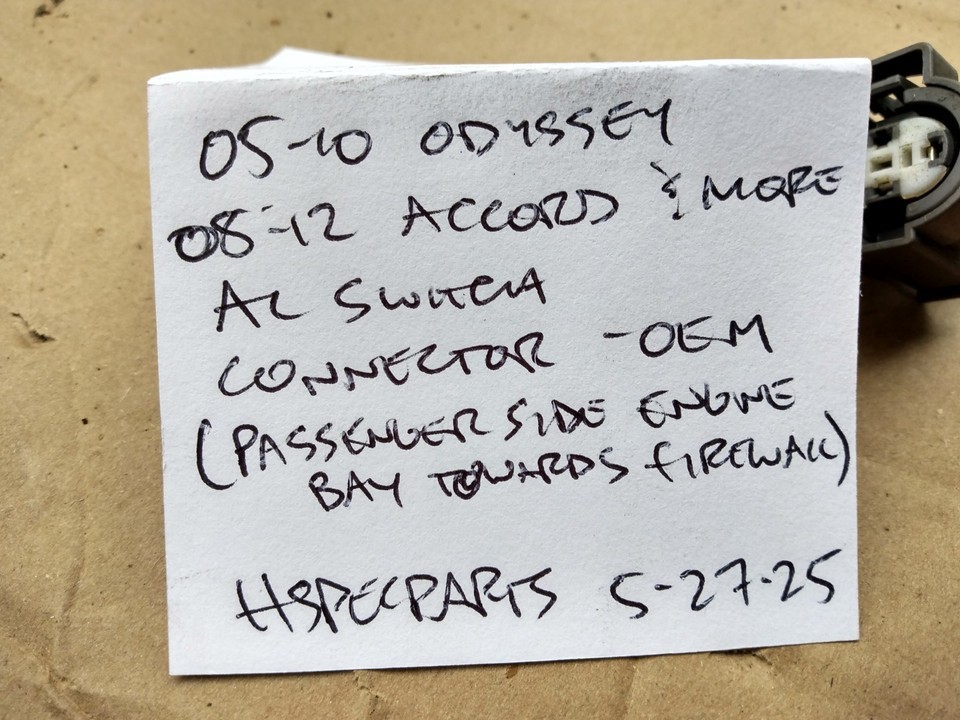 05-10 ODYSSEY
08-12 ACCORD & MORE
AC SWITCH
CONNECTOR - OEM
(PASSENGER SIDE ENGINE
BAY TOWARDS FIREWALL)
HSPECPARTS 5-27-25